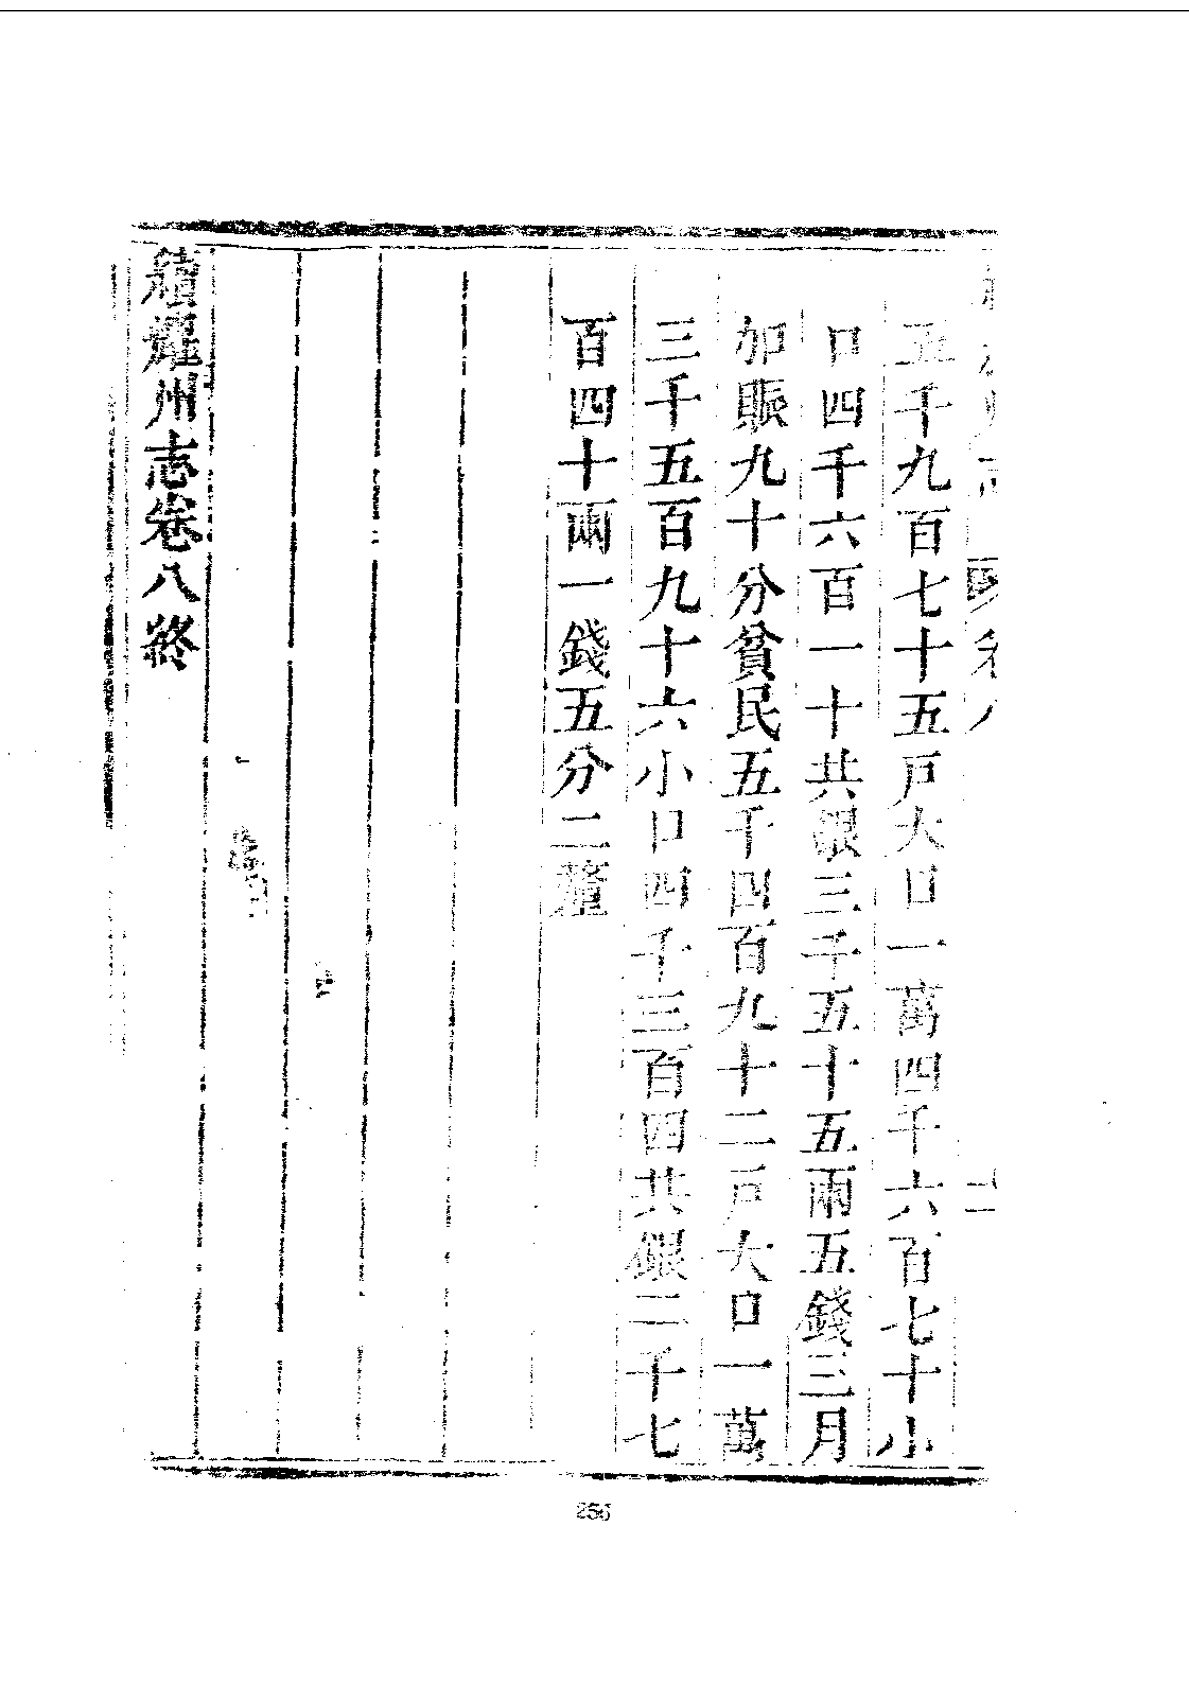 五千九百七十五戸大口一萬四千六百七十小
口四千六百一十共銀三千五十五兩五錢三月
加賑九十分貧民五千四百九十二戸大口一萬
三千五百九十六小口四千三百四共銀二千七
百四十兩一錢五分二釐
續耀州志卷八終
256